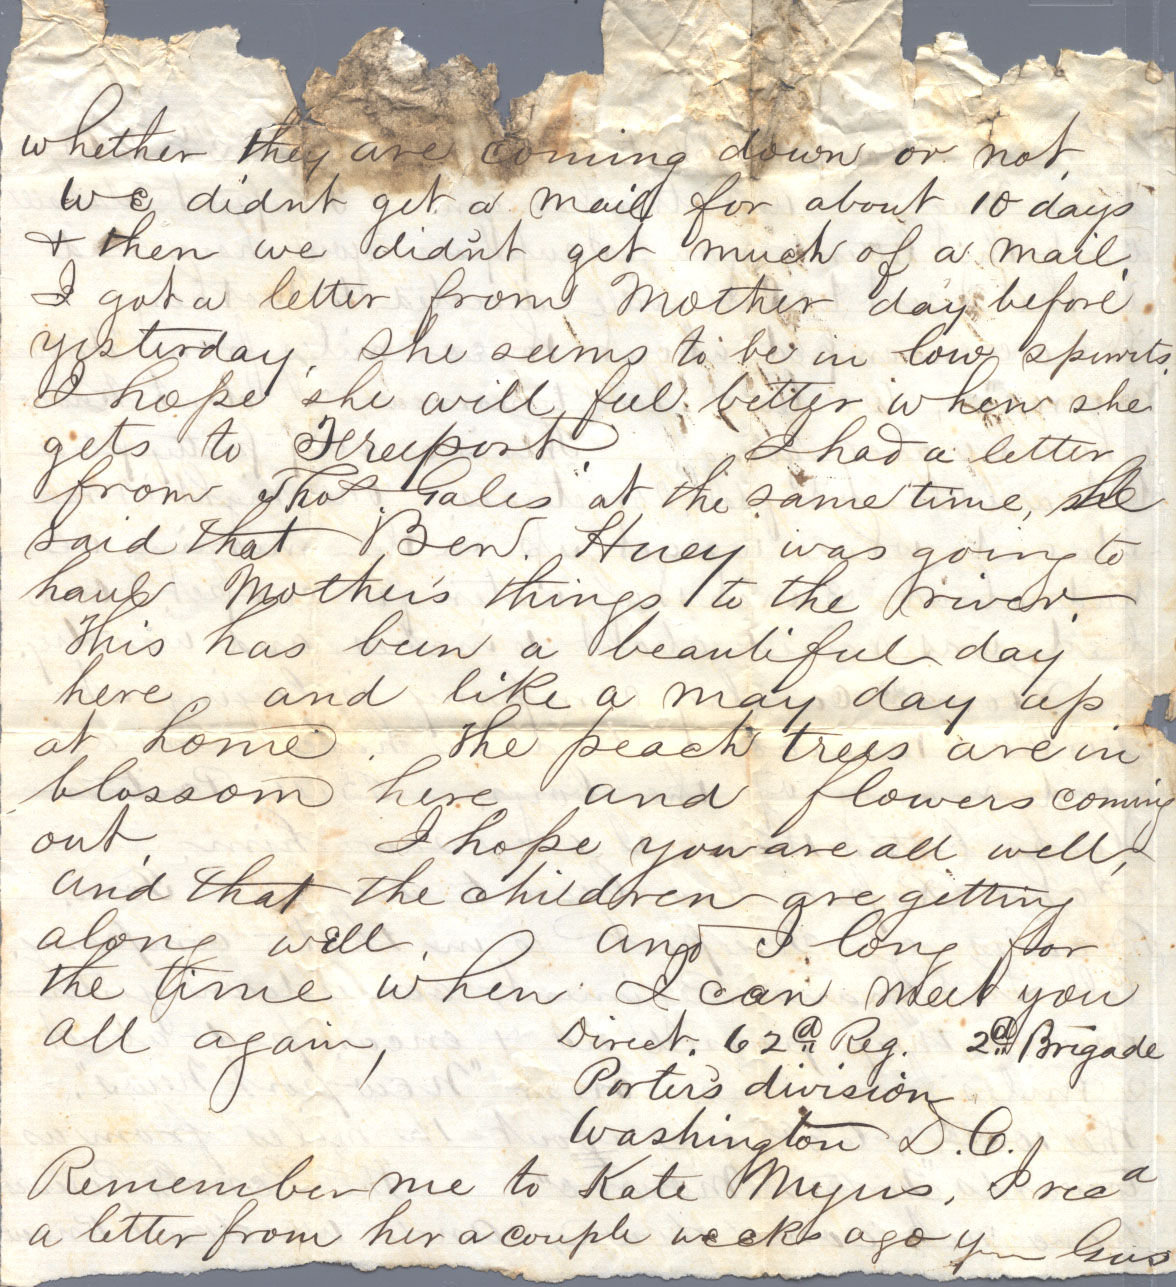 whether they are coming down or not
We didnt get a mail for about 10 days
& then we didn't get much of a mail,
I got a letter from Mother day before
yesterday, she seems to be in low spirits.
I hope she will feel better when she
gets to Freeport I had a letter
from Thos Gales at the same time, he
said that Ben. Huey was going to
haul Mother's things to the river
This has been a beautiful day
here, and like a may day up
at home. The peach trees are in
blossom here and flowers coming
out, I hope you are all well,
and that the children are getting
along well, and I long for
the time when I can meet you
all again, Direct. 62d Reg. 2d Brigade
Porter's division
Washington D.C.
Remember me to Kate Myers, I recd
a letter from her a couple weeks ago Yr Gus